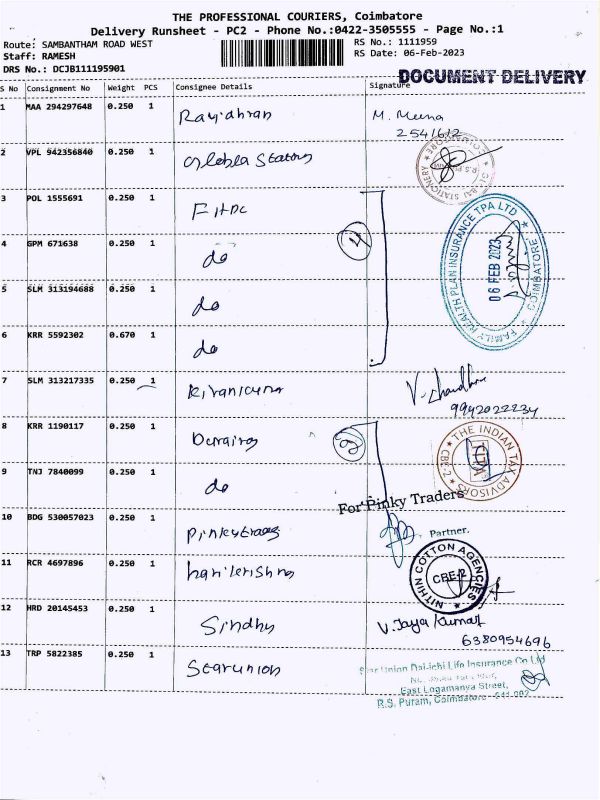 THE PROFESSIONAL COURIERS, Coimbatore
Delivery Runsheet - PC2 - Phone No.:0422-3505555 - Page No.:1
Route: SAMBANTHAM ROAD WEST
RS No.: 1111959
Staff: RAMESH
RS Date: 06-Feb-2023
DRS No.: DCJB111195901
DOCUMENT DELIVERY
S No Consignment No Weight PCS Consignee Details Signature
1 MAA 294297648 0.250 1 M. Meena
2541612
2 VPL 942356840 0.250 1
GLOBAL STATIONERY
COIMBATORE
3 POL 1555691 0.250 1 FHPC
4 GPM 671638 0.250 1 do
4
5 SLM 313194688 0.250 1 do
FAMILY HEALTH PLAN INSURANCE TPA LTD
COIMBATORE
06 FEB 2023
6 KRR 5592302 0.670 1 do
7 SLM 313217335 0.250 1 V. Chandra
9942022234
8 KRR 1190117 0.250 1
2
THE INDIAN TAX ADVISORS
CBE-2
ITA
9 TNJ 7840099 0.250 1 do
For Pinky Traders
Partner.
10 BDG 530057023 0.250 1
11 RCR 4697896 0.250 1 harikrishna
NITHIN COTTON AGENCIES
CBE-2
12 HRD 20145453 0.250 1 Sindhu V. Jaya Kumar
6380954696
13 TRP 5822385 0.250 1 Starunion
Star Union Dai-ichi Life Insurance Co Ltd
East Logamanya Street,
R.S. Puram, Coimbatore - 641 002